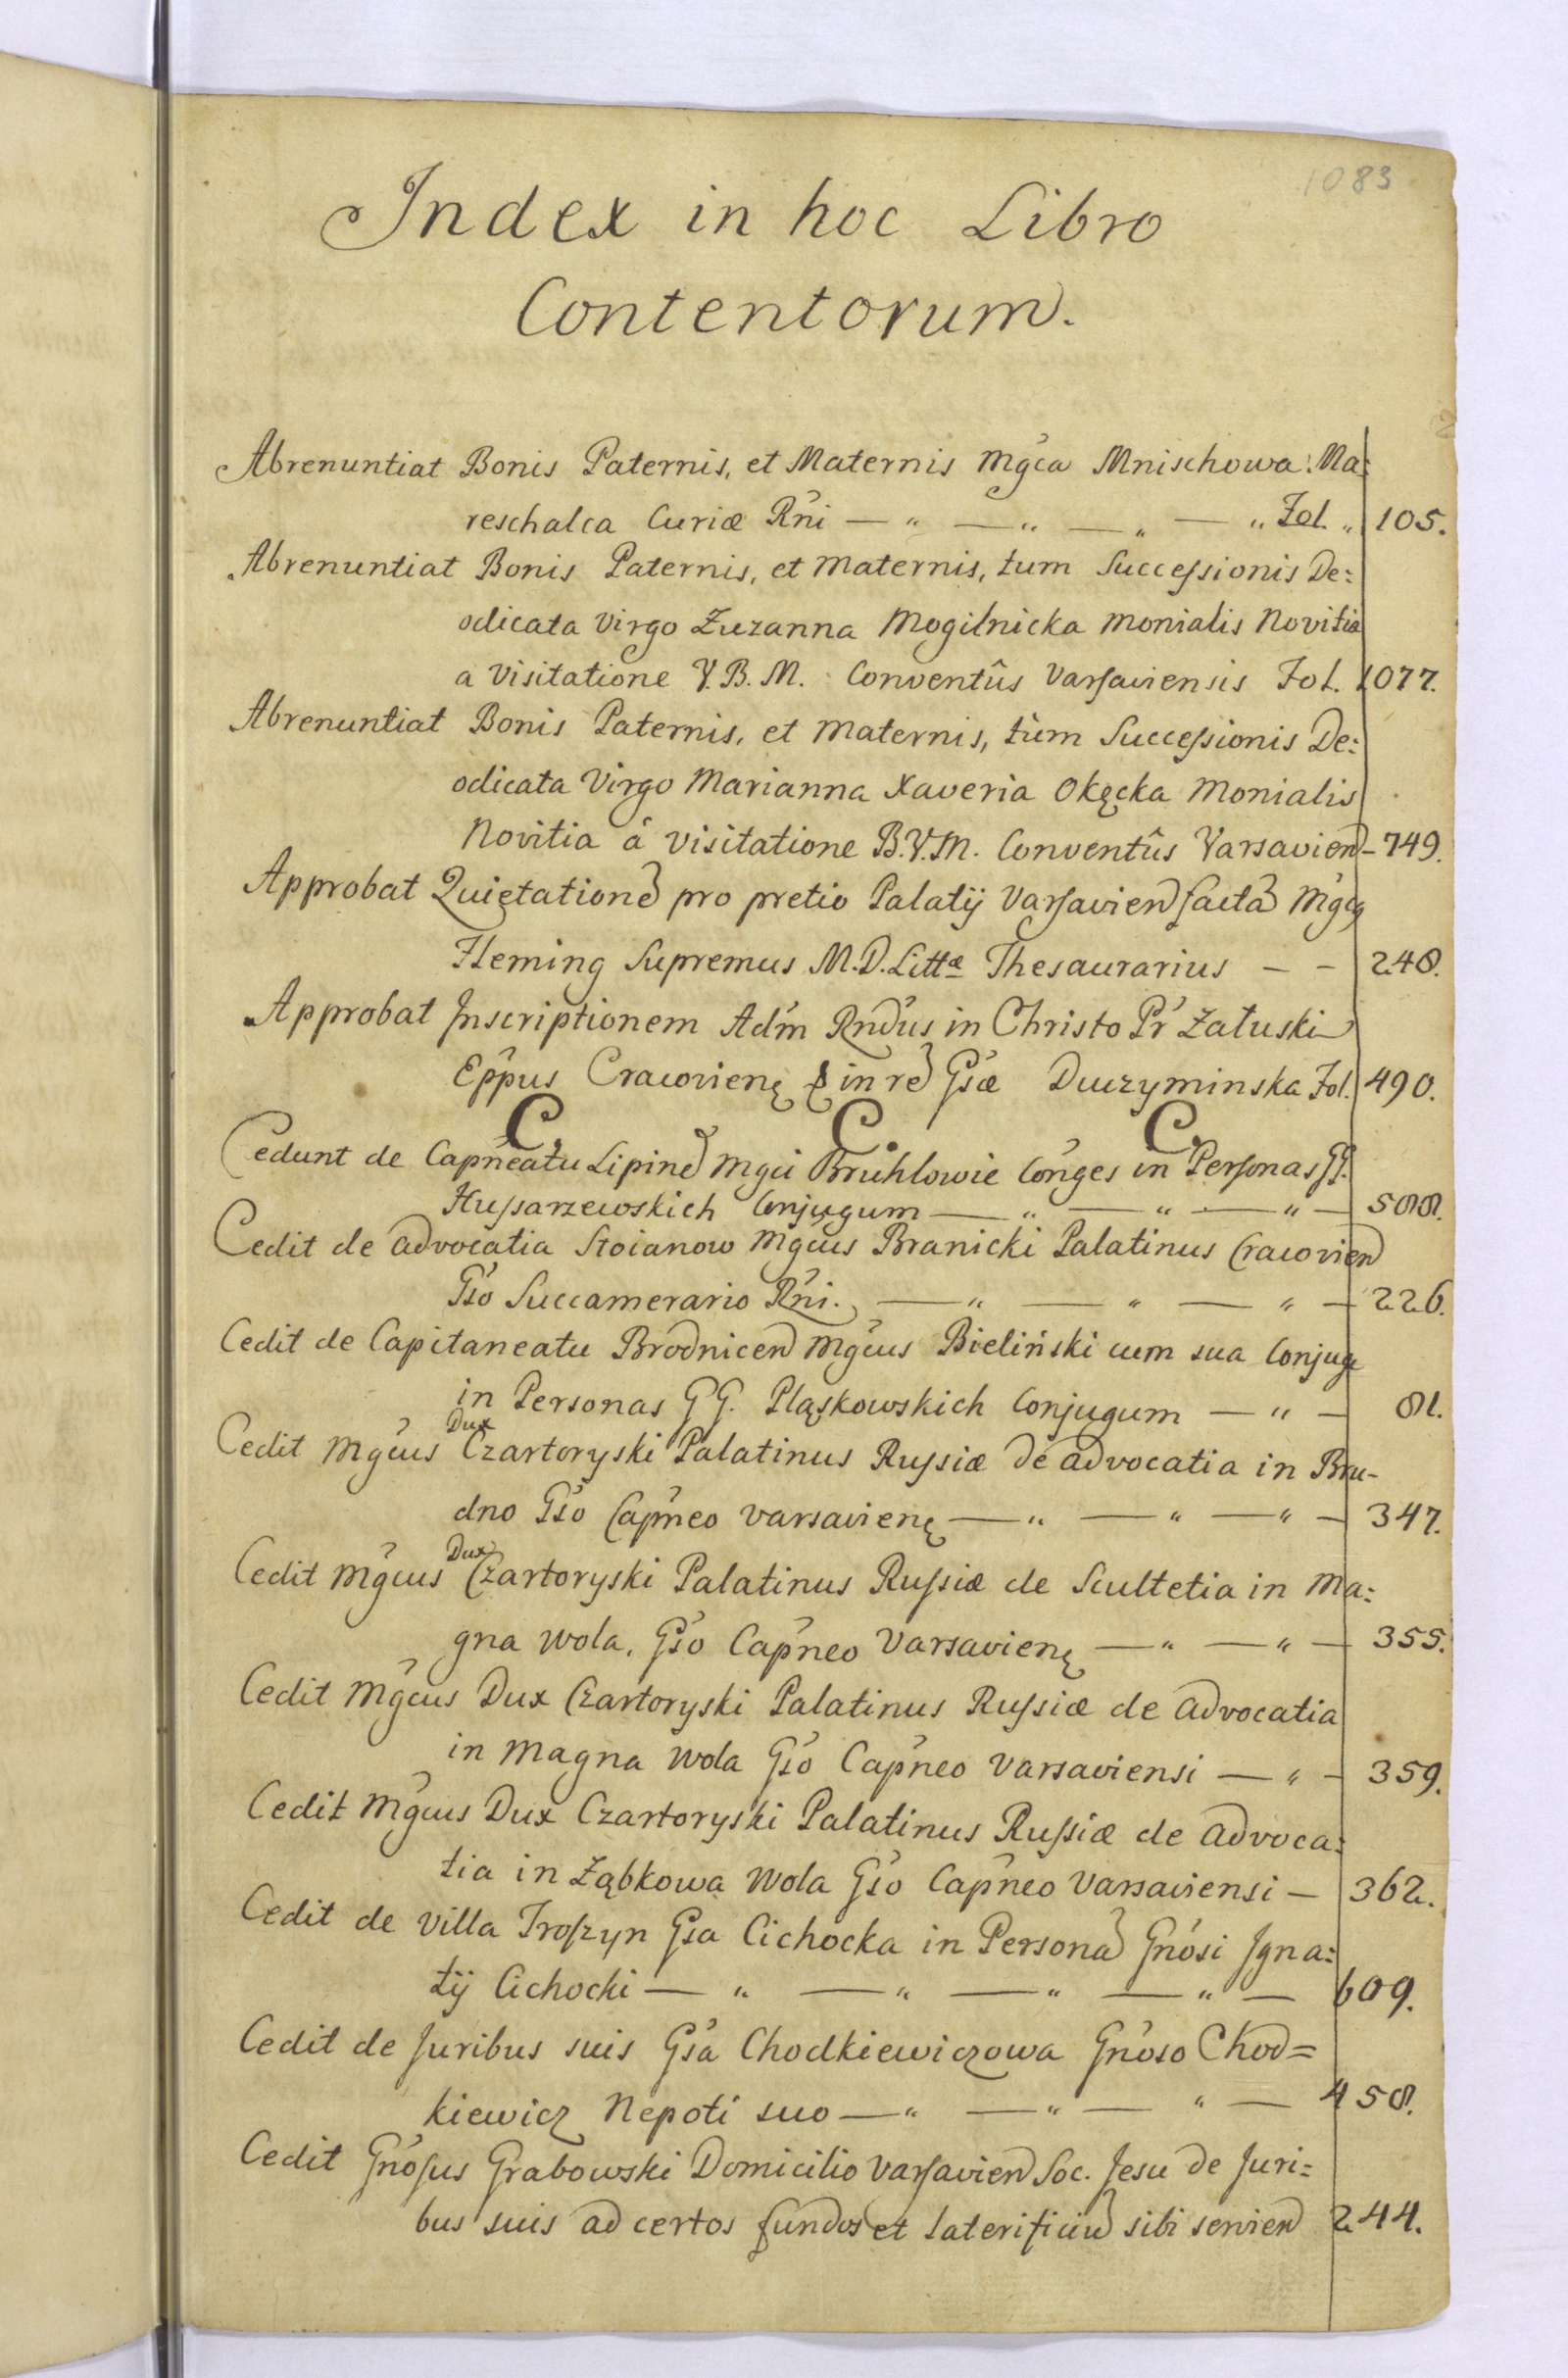 1083
Index in hoc Libro
Contentorum.
Abrenuntiat Bonis Paternis, et Maternis Mgca Mnischowa Ma:
reschalca Curiæ Rni — " — " — " — " Fol. " 105.
Abrenuntiat Bonis Paternis, et Maternis, tum Successionis De:
odicata Virgo Zuzanna Mogilnicka Monialis Novitia
a Visitatione V.B.M. Conventûs Varsaviensis Fol. 1077.
Abrenuntiat Bonis Paternis, et Maternis, tùm Successionis De:
odicata Virgo Marianna Xaveria Okęcka Monialis
Novitia â Visitatione B.V.M. Conventûs Varsavien - 749.
Approbat Quietatione pro pretio Palatij Varsavien facta Mgcg
Fleming Supremus M.D. Littæ Thesaurarius - - 248.
Approbat Inscriptionem Adm Rndus in Christo Pr Załuski
Eppus Cracovienę in re Gsæ Duczyminska Fol. 490.
C. C. C.
Cedunt de Capneatu Lipine Mgii Bruhlowie Conges in Personas GG.
Hussarzewskich Conjugum — " — " — " — 588.
Cedit de Advocatia Stoianow Mgcus Branicki Palatinus Cracovien
Gso Succamerario Rni. — " — " — " — 226.
Cedit de Capitaneatu Brodnicen Mgcus Bieliński cum sua Conjuge
in Personas GG. Pląskowskich Conjugum — " — 81.
Cedit Mgcus Dux Czartoryski Palatinus Russiæ de Advocatia in Bru-
dno Gso Capneo Varsavienę — " — " — " — 347.
Cedit Mgcus Dux Czartoryski Palatinus Russiæ de Scultetia in Ma:
gna Wola, Gso Capneo Varsavienę — " — " — 355.
Cedit Mgcus Dux Czartoryski Palatinus Russiæ de Advocatia
in Magna Wola Gso Capneo Varsaviensi — " — 359.
Cedit Mgcus Dux Czartoryski Palatinus Russiæ de Advoca:
tia in Ząbkowa Wola Gso Capneo Varsaviensi — 362.
Cedit de Villa Troszyn Gsa Cichocka in Persona Gnosi Igna:
tij Cichocki — " — " — " — " — 609.
Cedit de Juribus suis Gsa Chodkiewiczowa Gnoso Chod=
kiewicz Nepoti suo — " — " — " — 458.
Cedit Gnosus Grabowski Domicilio Varsavien Soc. Jesu de Juri:
bus suis ad certos fundos et laterificiu sibi servien 244.